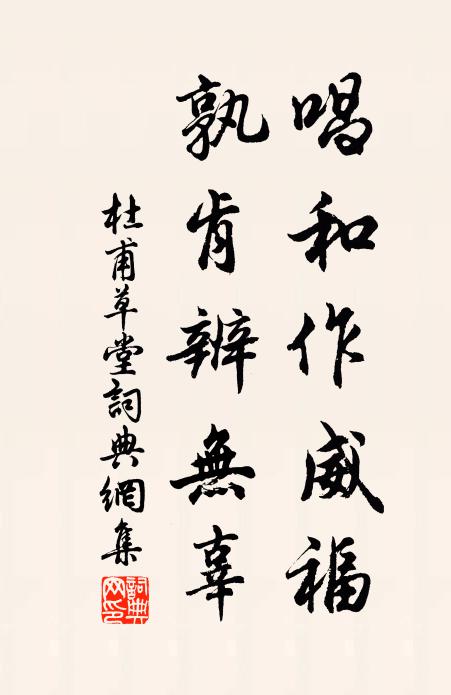 唱和作威福
孰肯辨無辜
杜甫草堂詞典網集
詞典网印